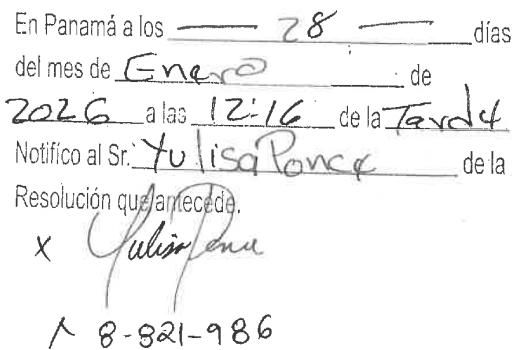 En Panamá a los 28 días
del mes de Enero de
2026 a las 12:16 de la Tarde
Notifico al Sr. Yulisa Ponce de la
Resolución que antecede.
x Yulisa Ponce
8-821-986